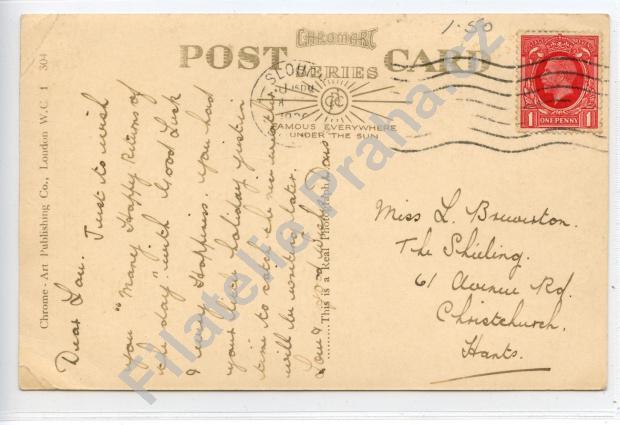 1.50
CHROMART
POST CARD
SERIES
SLOUGH
FAMOUS EVERYWHERE
UNDER THE SUN
1 ONE PENNY 1
Chrome-Art Publishing Co., London W.C. 1 304
Dear Lou. Just to wish
you "Many Happy Returns of
the day" with Good Luck
& every Happiness. You had
your last holiday just in
time to catch the nice weather
will be writing later.
Love & Good Wishes
This is a Real Photograph
Miss L. Brewerton.
The Shieling.
61 Avenue Rd.
Christchurch.
Hants.
Filatelie-Praha.cz